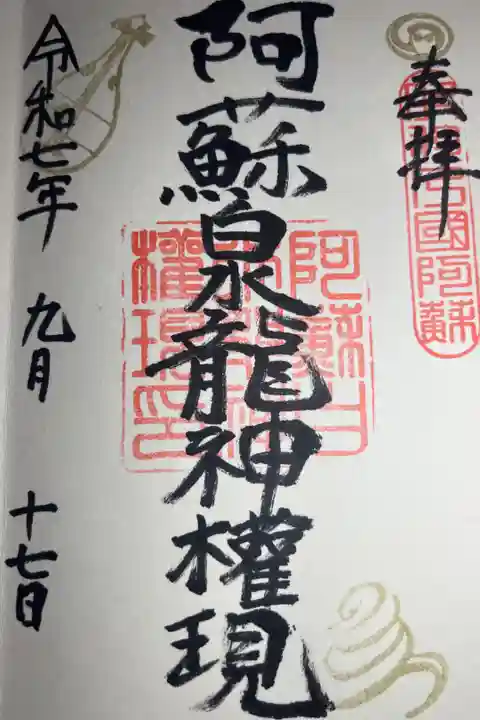 奉拝
國阿蘇
阿蘇白水龍神權現
阿蘇白
水龍神
權現印
令和七年 九月 十七日